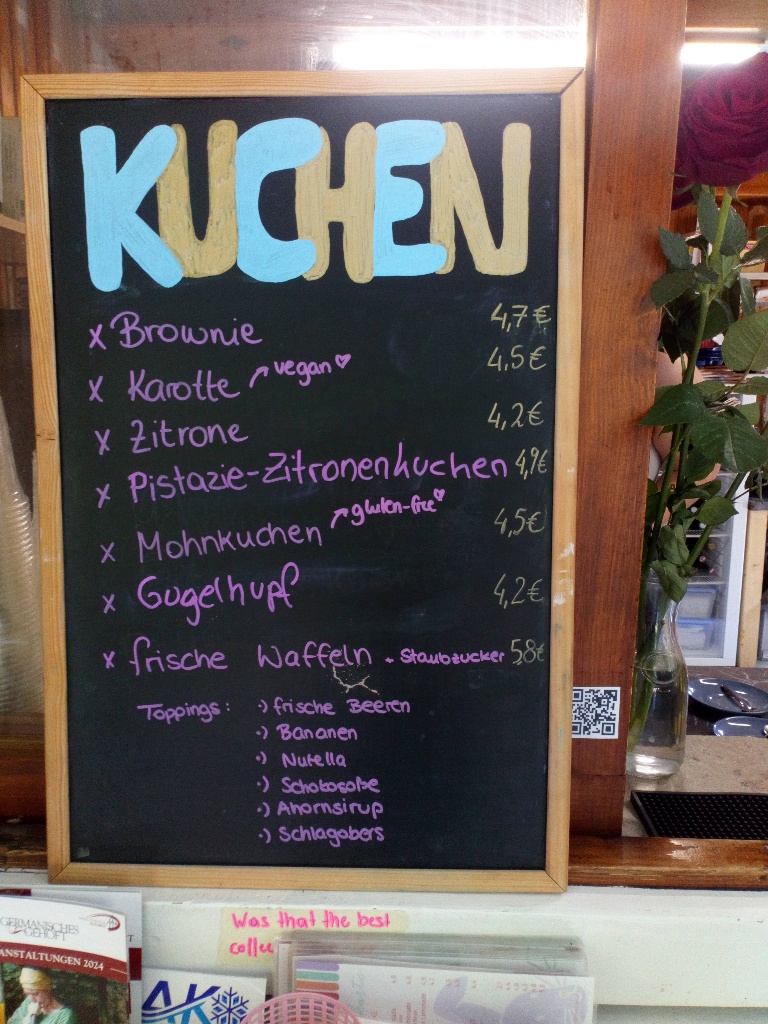 KUCHEN
x Brownie 4,7€
x Karotte → vegan♡ 4,5€
x Zitrone 4,2€
x Pistazie-Zitronenkuchen 4,9€
x Mohnkuchen → gluten-free♡ 4,5€
x Gugelhupf 4,2€
x frische Waffeln + Staubzucker 5,8€
Toppings: ·) frische Beeren
·) Bananen
·) Nutella
·) Schokosoße
·) Ahornsirup
·) Schlagobers
Was that the best
coffee
GERMANISCHES
GEHÖFT
ANSTALTUNGEN 2024
AK